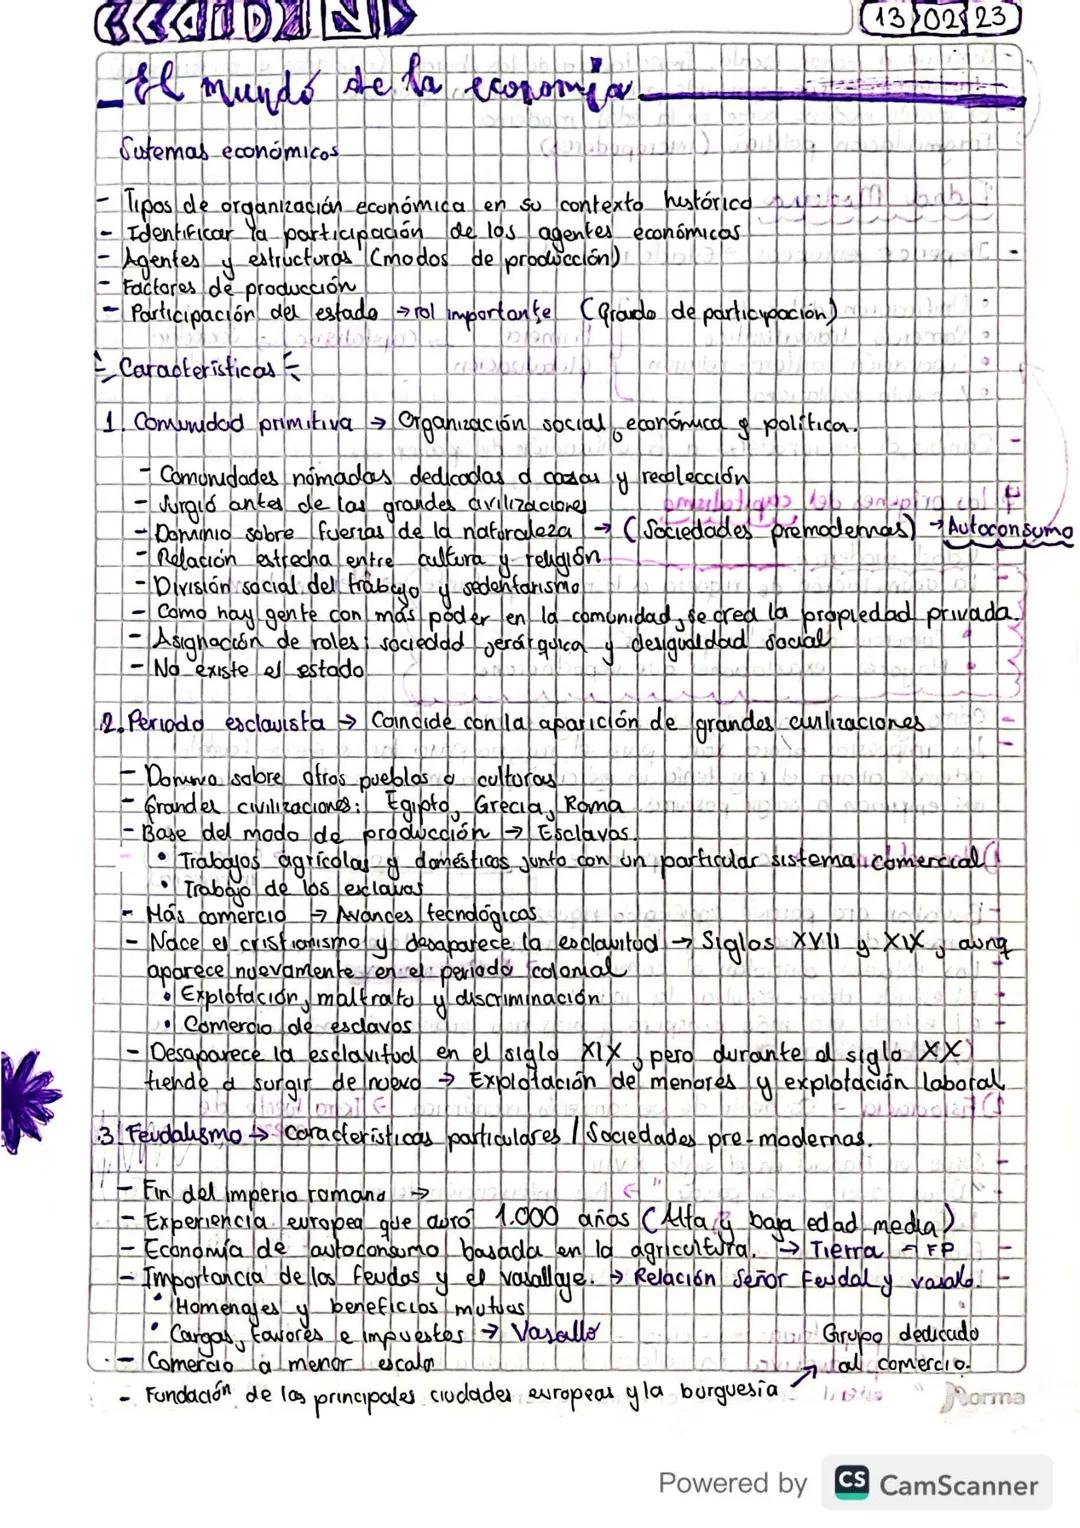 13 02 23
El mundo de la economía
Sistemas económicos
- Tipos de organización económica en su contexto histórico
- Identificar la participación de los agentes económicos
- Agentes y estructuras (modos de producción)
- Factores de producción
- Participación del estado → rol importante (Grado de participación)
Características
1. Comunidad primitiva → Organización social, económica y política.
- Comunidades nómadas dedicadas a cazar y recolección
- Surgió antes de las grandes civilizaciones
- Dominio sobre fuerzas de la naturaleza → (Sociedades premodernas) → Autoconsumo
- Relación estrecha entre cultura y religión
- División social del trabajo y sedentarismo
- Como hay gente con más poder en la comunidad, se crea la propiedad privada.
- Asignación de roles; sociedad jerárquica y desigualdad social
- No existe el estado
2. Periodo esclavista → Coincide con la aparición de grandes civilizaciones
- Dominio sobre otros pueblos o culturas
- Grandes civilizaciones: Egipto, Grecia, Roma
- Base del modo de producción → Esclavos.
• Trabajos agrícolas y domésticos junto con un particular sistema comercial
• Trabajo de los esclavos
- Más comercio → Avances tecnológicos
- Nace el cristianismo y desaparece la esclavitud → Siglos XVII y XIX, aunq
aparece nuevamente en el periodo colonial
• Explotación, maltrato y discriminación
• Comercio de esclavos
- Desaparece la esclavitud en el siglo XIX, pero durante el siglo XX
tiende a surgir de nuevo → Explotación de menores y explotación laboral
3. Feudalismo → Características particulares / Sociedades pre-modernas.
- Fin del imperio romano →
- Experiencia europea que duró 1.000 años (Alta y baja edad media)
- Economía de autoconsumo basada en la agricultura. → Tierra FP
- Importancia de los feudos y el vasallaje. → Relación Señor Feudal y vasallo.
• Homenajes y beneficios mutuos
• Cargas, favores e impuestos → Vasallo
- Comercio a menor escala
- Fundación de las principales ciudades europeas y la burguesía ↗ Grupo dedicado
al comercio.
Norma
Powered by CS CamScanner